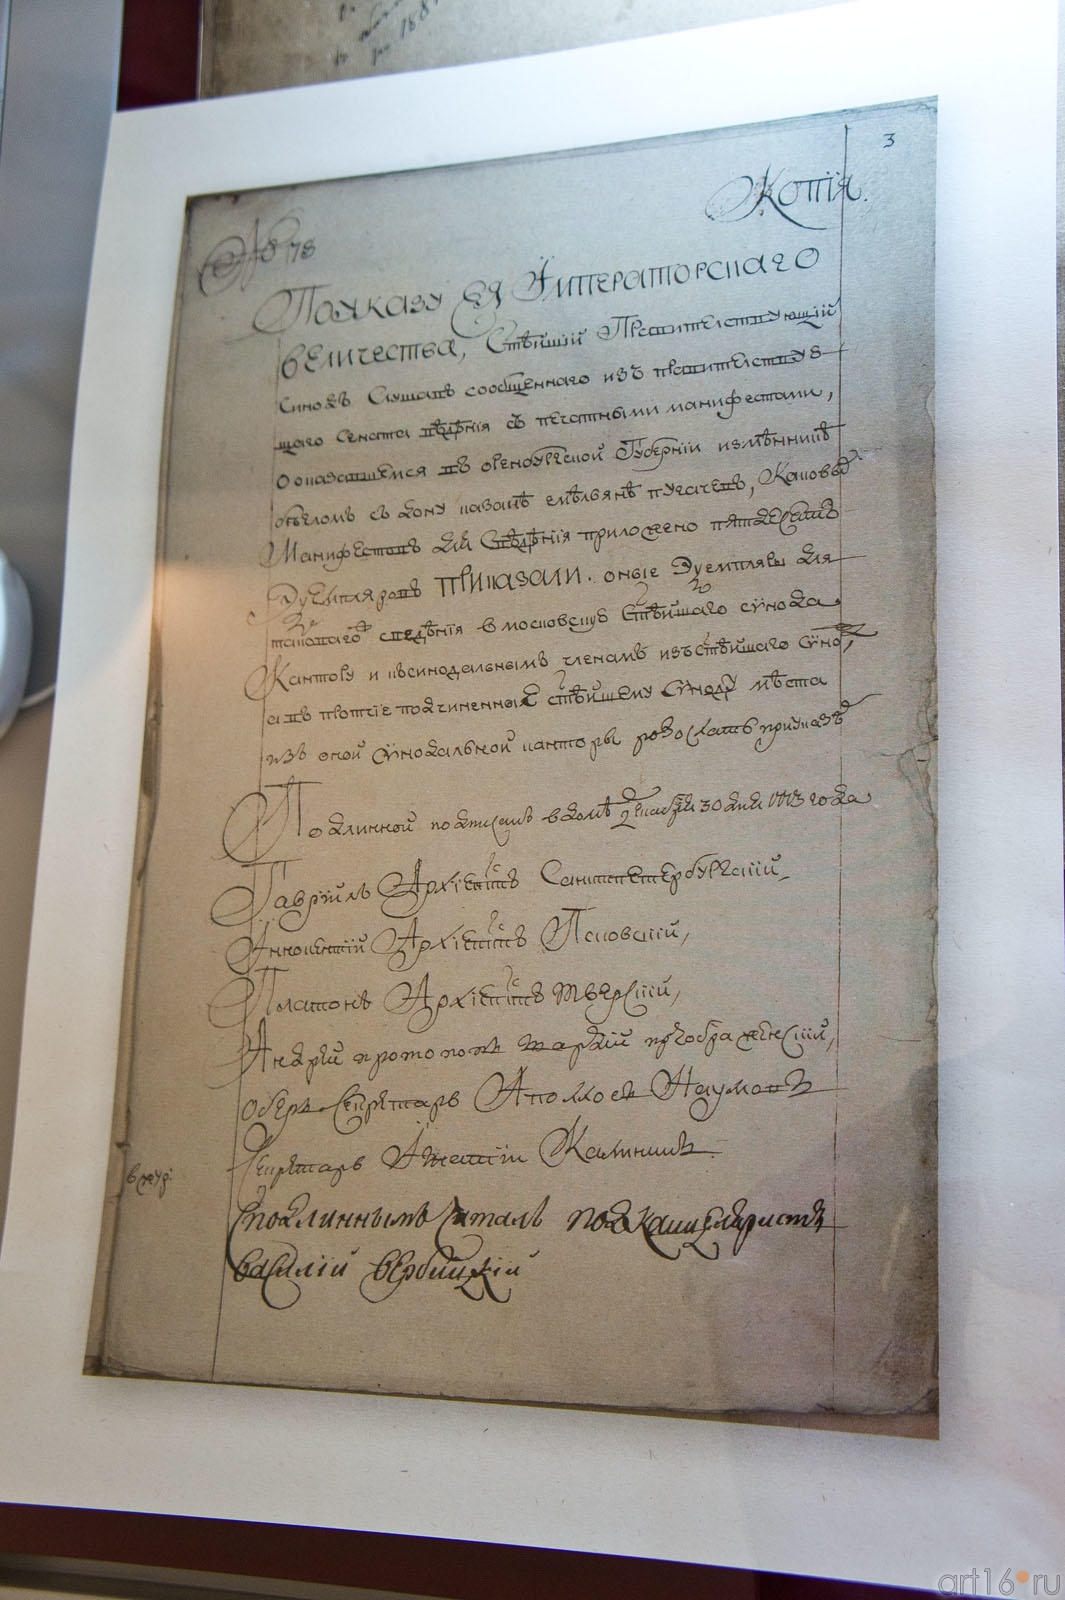 3
Копія.
№ 78
По указу Ея Імператорскаго
величества, Стѣйшій Правителствующій
Синодъ Слушавъ сообщеннаго изъ правителствую
щаго Сената вѣдѣнія съ печатными манифестами,
о оказавшемся въ оренбургской Губерніи измѣнникѣ
бѣгломъ съ дону казакѣ емѣльянѣ пугачевѣ, Каковых
Манифестовъ для Свѣдѣнія приложено пятдесятъ
Экземпляровъ приказали. оные Экземпляры для
таковаго свѣдѣнія в московскую Стѣйшаго сѵнода
Кантору и къ синодальнымъ членамъ изъ стѣйшаго сѵнода,
а въ протчіе подчиненныя стѣйшему Сѵноду мѣста
изъ оной сѵнодальной канторы розослать при указѣ
Подлинной подписанъ в домѣ ноября 30 дня 1773 года
Гавріилъ Архіепкпъ Санктпетербургскій,
Иннокентій Архіепкпъ Псковскій,
Платонъ Архіепкпъ тверскій,
Андрей протопопъ преображенскій,
оберъ Секретарь Аполлосъ Наумовъ
Секретарь Игнатій Калининъ
Сподлиннымъ Читалъ подканцеляристъ
василій вербицкій
art16.ru